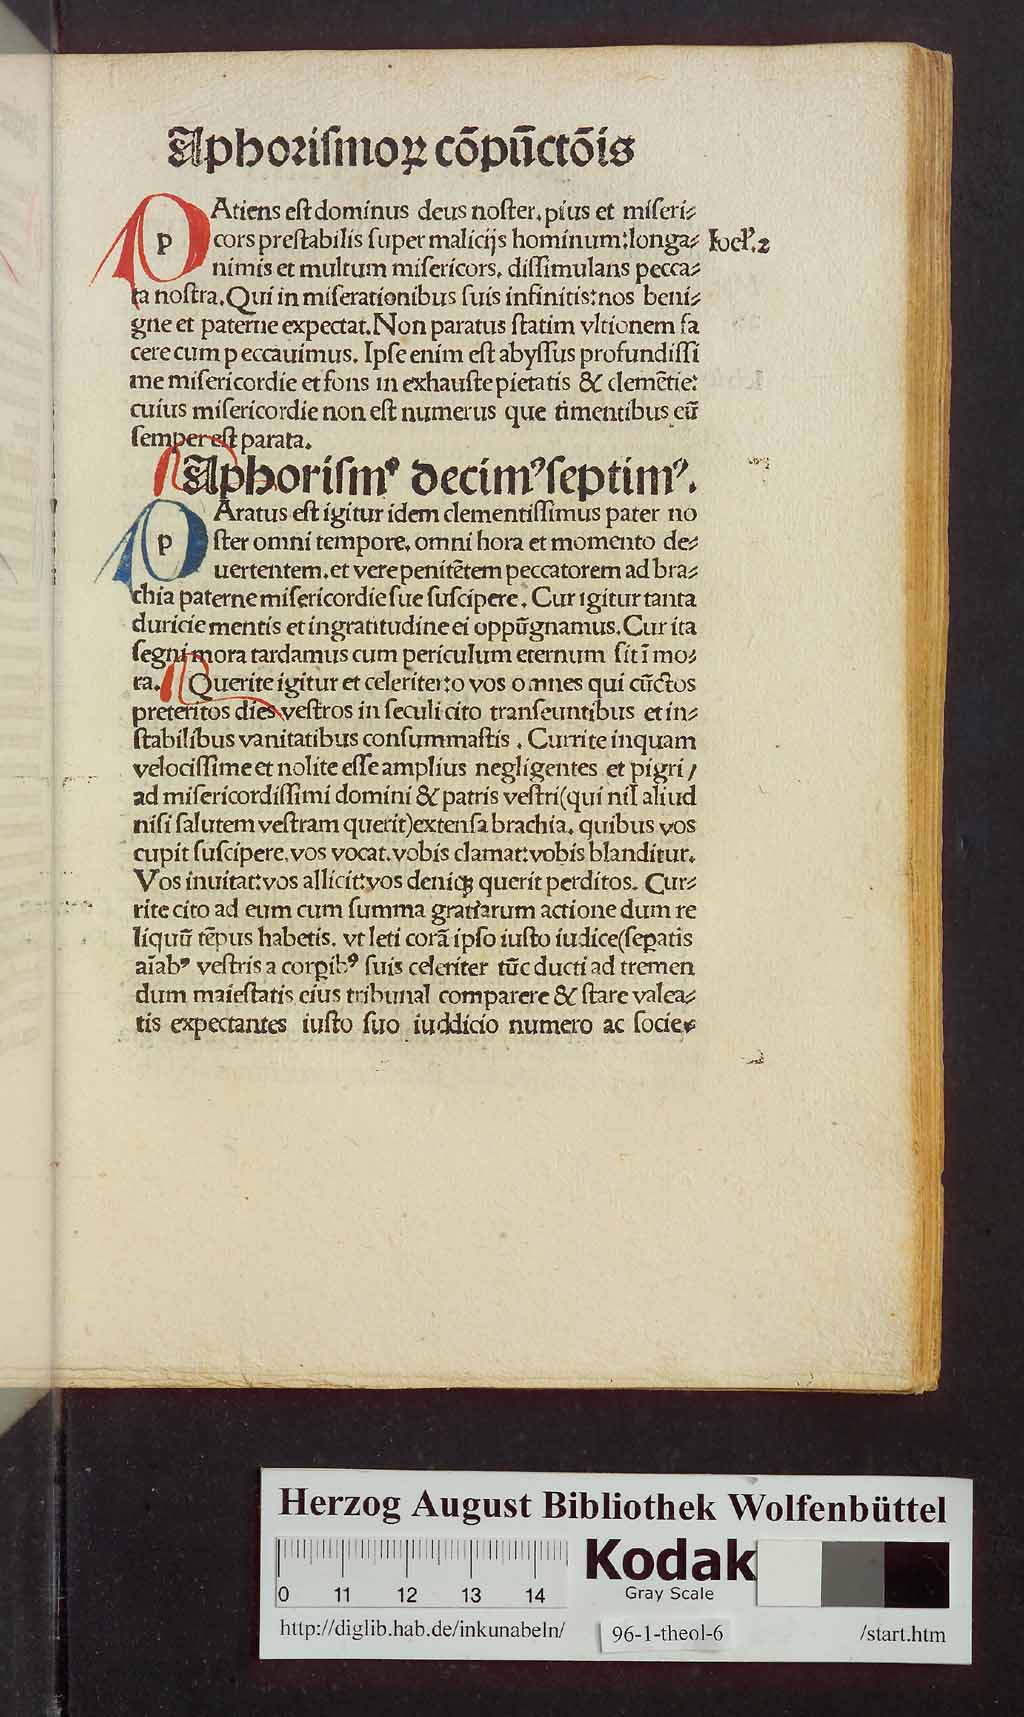 Aphoriſmoꝝ cõpũctõis
PAtiens eſt dominus deus noſter. pius et miſeri⸗
cors preſtabilis ſuper malicijs hominum: longa⸗ Ioel'. 2
nimis et multum miſericors. diſſimulans pecca⸗
ta noſtra. Qui in miſerationibus ſuis infinitis: nos beni⸗
gne et paterne expectat. Non paratus ſtatim vltionem fa
cere cum peccauimus. Ipſe enim eſt abyſſus profundiſſi
me miſericordie et fons in exhauſte pietatis & clemẽtie:
cuius miſericordie non eſt numerus que timentibus eũ
ſemper eſt parata.
Aphoriſmꝰ decimꝰ ſeptimꝰ.
PAratus eſt igitur idem clementiſſimus pater no
ſter omni tempore. omni hora et momento de⸗
uertentem. et vere penitẽtem peccatorem ad bra⸗
chia paterne miſericordie ſue ſuſcipere. Cur igitur tanta
duricie mentis et ingratitudine ei oppũgnamus. Cur ita
ſegni mora tardamus cum periculum eternum ſit ĩ mo⸗
ra. Querite igitur et celeriter: o vos omnes qui cũctos
preteritos dies veſtros in ſeculi cito tranſeuntibus et in⸗
ſtabilibus vanitatibus conſummaſtis. Currite inquam
velociſſime et nolite eſſe amplius negligentes et pigri /
ad miſericordiſſimi domini & patris veſtri (qui nil aliud
niſi ſalutem veſtram querit) extenſa brachia. quibus vos
cupit ſuſcipere. vos vocat. vobis clamat: vobis blanditur.
Vos inuitat: vos allicit: vos deniqꝫ querit perditos. Cur⸗
rite cito ad eum cum ſumma gratiarum actione dum re
liquũ tẽpus habetis. vt leti corã ipſo iuſto iudice (ſeꝑatis
aĩabꝰ veſtris a corꝑibꝰ ſuis celeriter tũc ducti ad tremen
dum maieſtatis eius tribunal comparere & ſtare valea⸗
tis expectantes iuſto ſuo iuddicio numero ac ſocie⸗
Herzog August Bibliothek Wolfenbüttel
0 11 12 13 14
Kodak
Gray Scale
http://diglib.hab.de/inkunabeln/ 96-1-theol-6 /start.htm